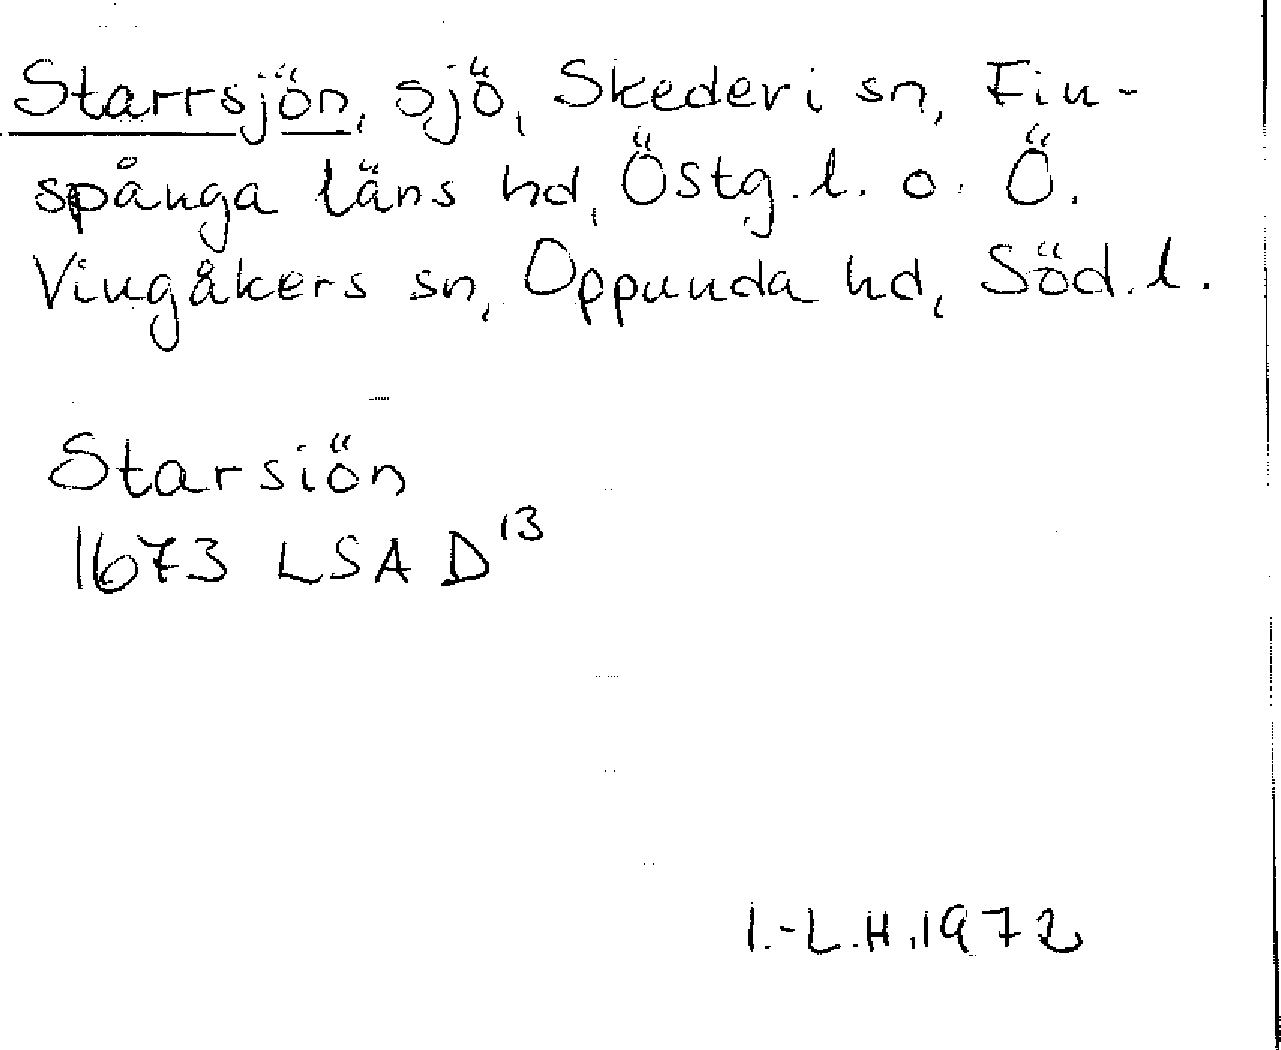 Starrsjön, sjö, Skederi sn, Fin-
spånga läns hd, Östg. l. o. Ö.
Vingåkers sn, Oppunda hd, Söd. l.
Starsiön
1673 LSA D¹³
I.-L.H. 1972